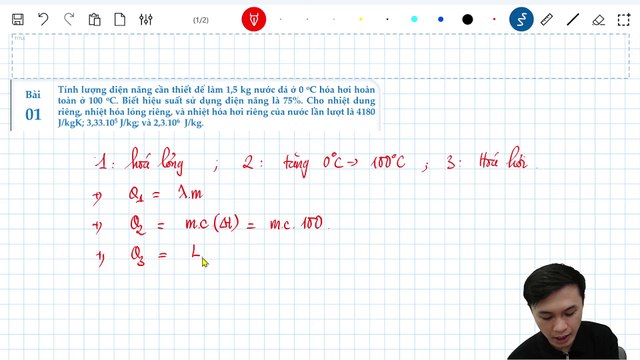 (1/2)
TITLE
Bài
01
Tính lượng điện năng cần thiết để làm 1,5 kg nước đá ở 0 ºC hóa hơi hoàn
toàn ở 100 ºC. Biết hiệu suất sử dụng điện năng là 75%. Cho nhiệt dung
riêng, nhiệt hóa lỏng riêng, và nhiệt hóa hơi riêng của nước lần lượt là 4180
J/kgK; 3,33.10⁵ J/kg; và 2,3.10⁶ J/kg.
1: hoá lỏng ; 2: tăng 0°C → 100°C ; 3: Hoá hơi.
⇒ Q₁ = λ.m
⇒ Q₂ = m.c(Δt) = m.c.100.
⇒ Q₃ = L